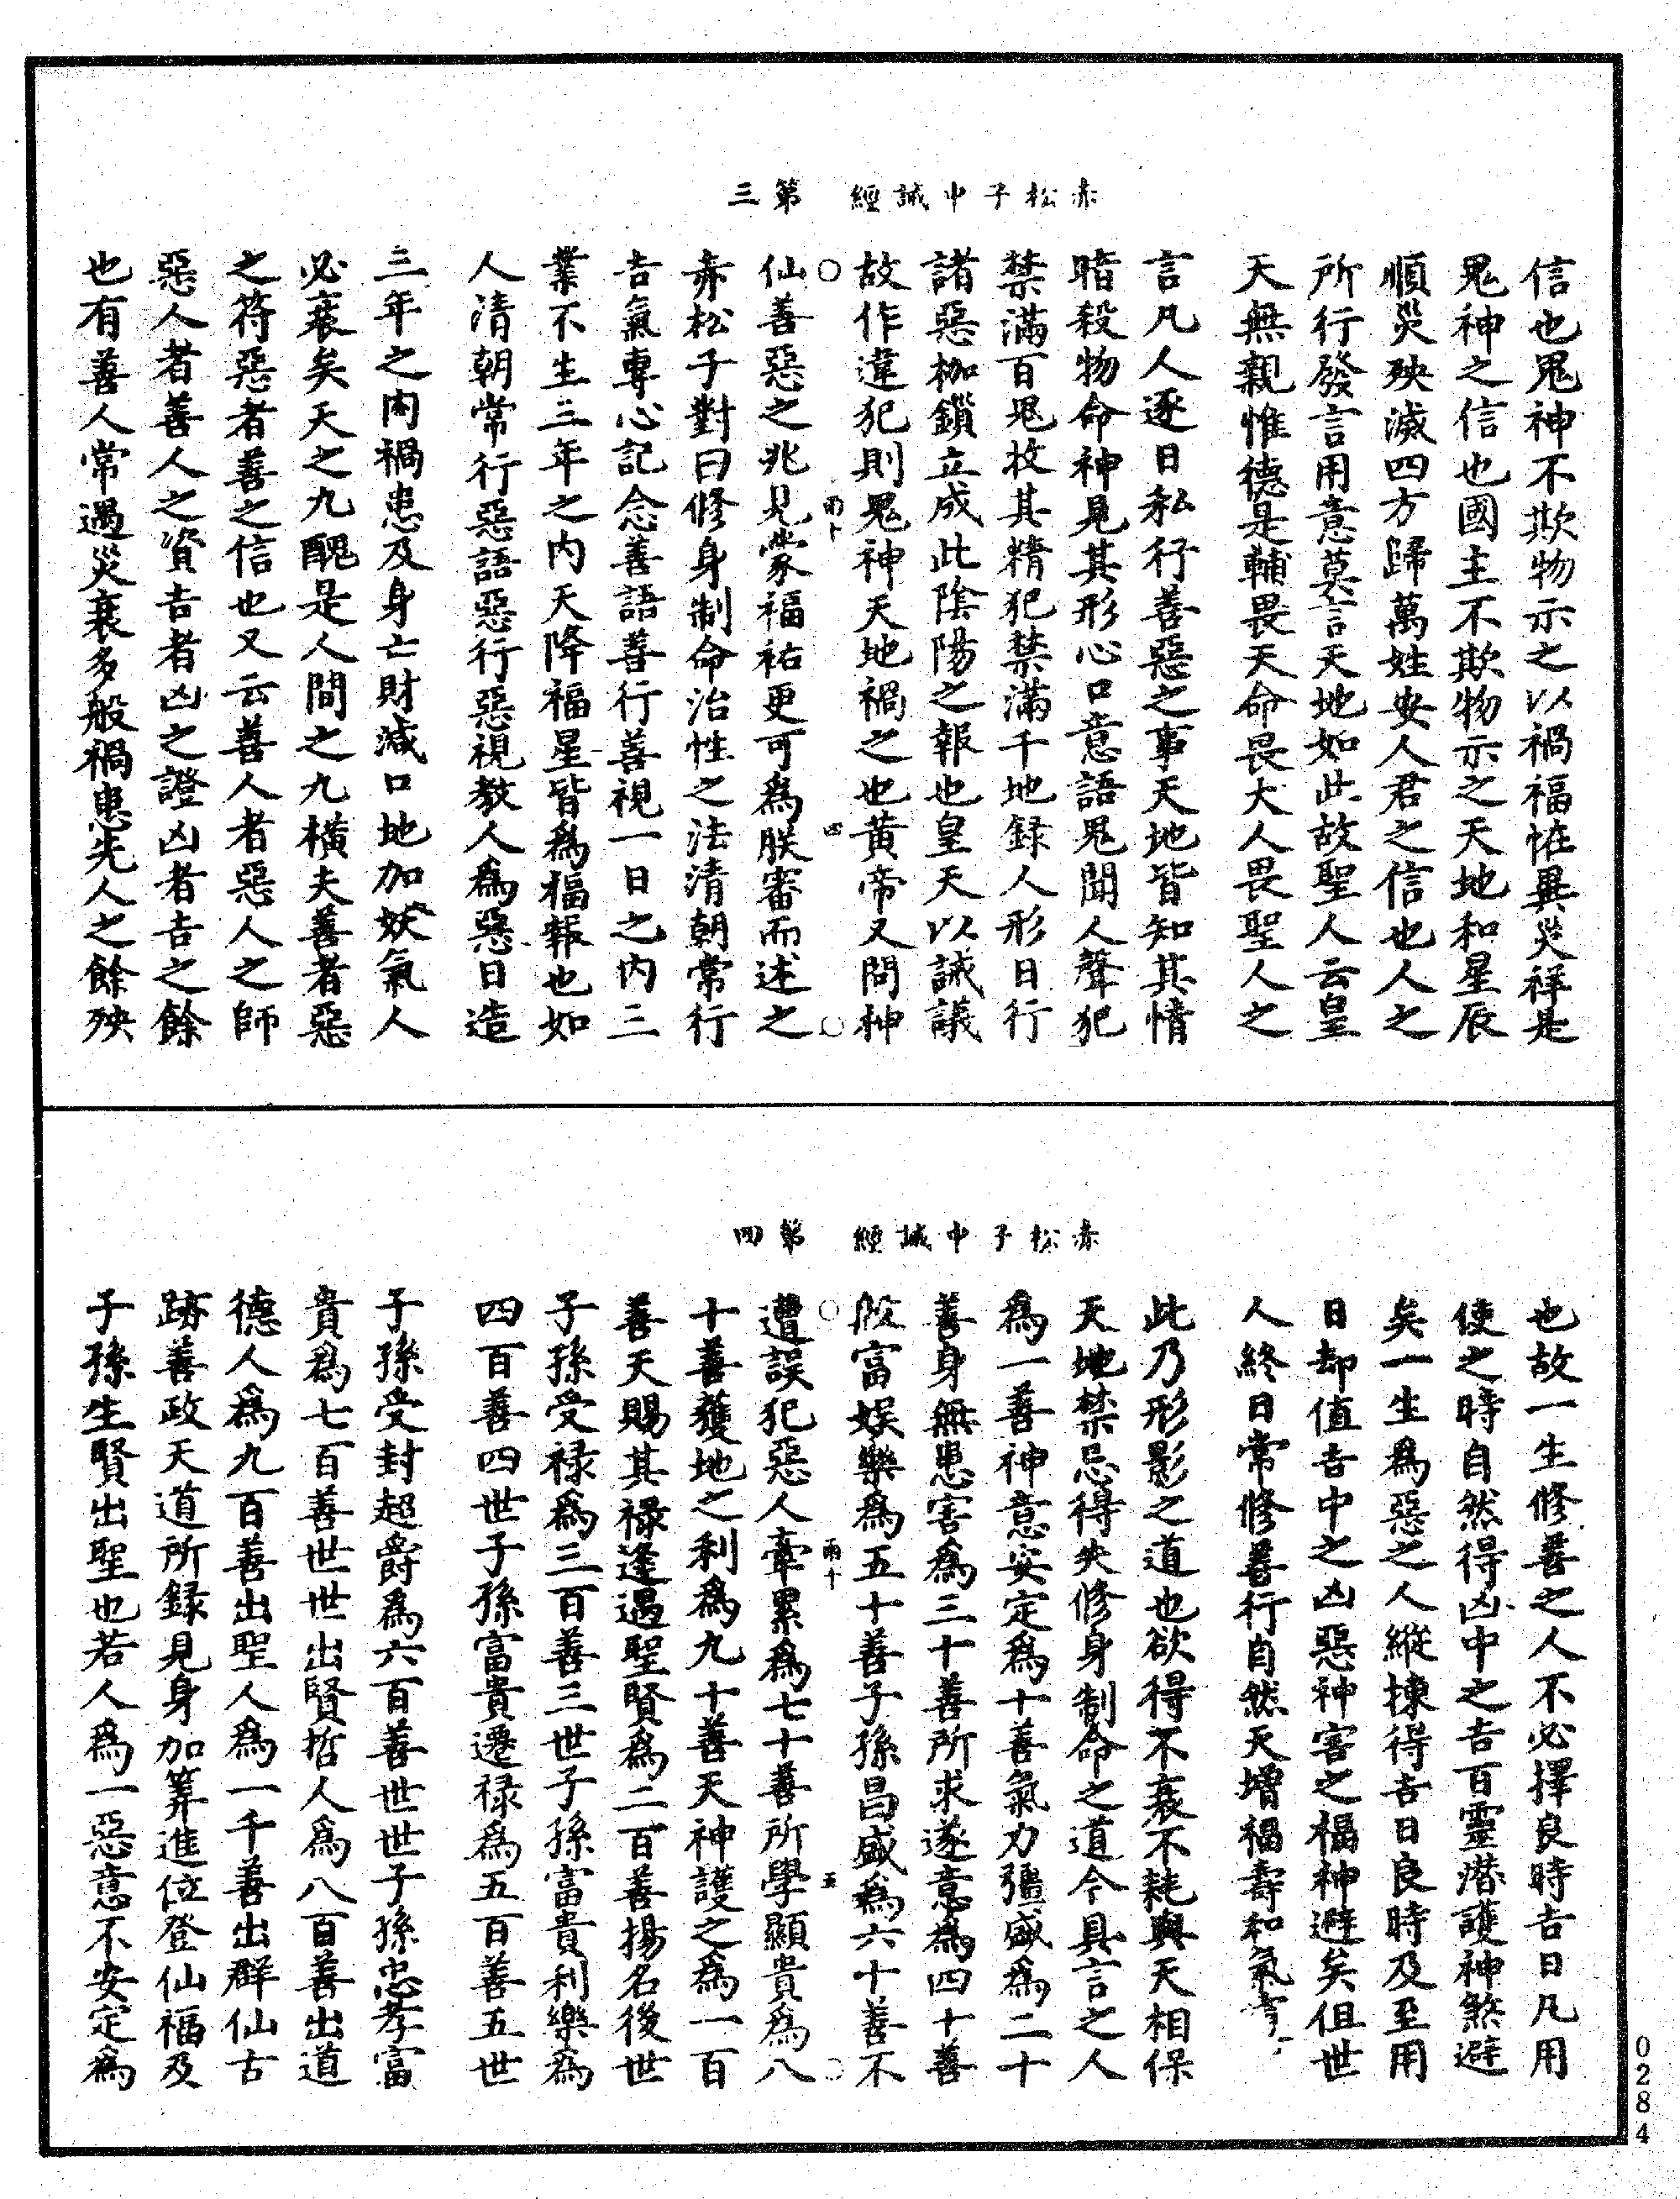 赤松子中誡經　第三
信也鬼神不欺物示之以禍福恠異災祥是
鬼神之信也國主不欺物示之天地和星辰
順災殃滅四方歸萬姓安人君之信也人之
所行發言用意莫言天地如此故聖人云皇
天無親惟德是輔畏天命畏大人畏聖人之
言凡人逐日私行善惡之事天地皆知其情
暗殺物命神見其形心口意語鬼聞人聲犯
禁滿百鬼收其精犯禁滿千地録人形日行
諸惡枷鎖立成此陰陽之報也皇天以誡議
故作違犯則鬼神天地禍之也黄帝又問神
仙善惡之兆見蒙福祐更可為朕審而述之
赤松子對曰修身制命治性之法清朝常行
吉氣專心記念善語善行善視一日之内三
業不生三年之内天降福星皆為福報也如
人清朝常行惡語惡行惡視教人為惡日造
三年之内禍患及身亡財減口地加妖氣人
必衰矣天之九醜是人間之九橫夫善者惡
之符惡者善之信也又云善人者惡人之師
惡人者善人之資吉者凶之證凶者吉之餘
也有善人常遇災衰多般禍患先人之餘殃
雨十
四
赤松子中誡經　第四
也故一生修善之人不必擇良時吉日凡用
使之時自然得凶中之吉百靈潛護神煞避
矣一生為惡之人縱揀得吉日良時及至用
日却值吉中之凶惡神害之福神避矣但世
人終日常修善行自然天增福壽和氣
此乃形影之道也欲得不衰不耗與天相保
天地禁忌得失修身制命之道今具言之人
為一善神意安定為十善氣力彊盛為二十
善身無患害為三十善所求遂意為四十善
殷富娱樂為五十善子孫昌盛為六十善不
遭誤犯惡人牽累為七十善所學顯貴為八
十善獲地之利為九十善天神護之為一百
善天賜其禄逢遇聖賢為二百善揚名後世
子孫受禄為三百善三世子孫富貴利樂為
四百善四世子孫富貴遷禄為五百善五世
子孫受封超爵為六百善世世子孫忠孝富
貴為七百善世世出賢哲人為八百善出道
德人為九百善出聖人為一千善出群仙古
跡善政天道所録見身加筭進位登仙福及
子孫生賢出聖也若人為一惡意不安定為
雨十
五
0284